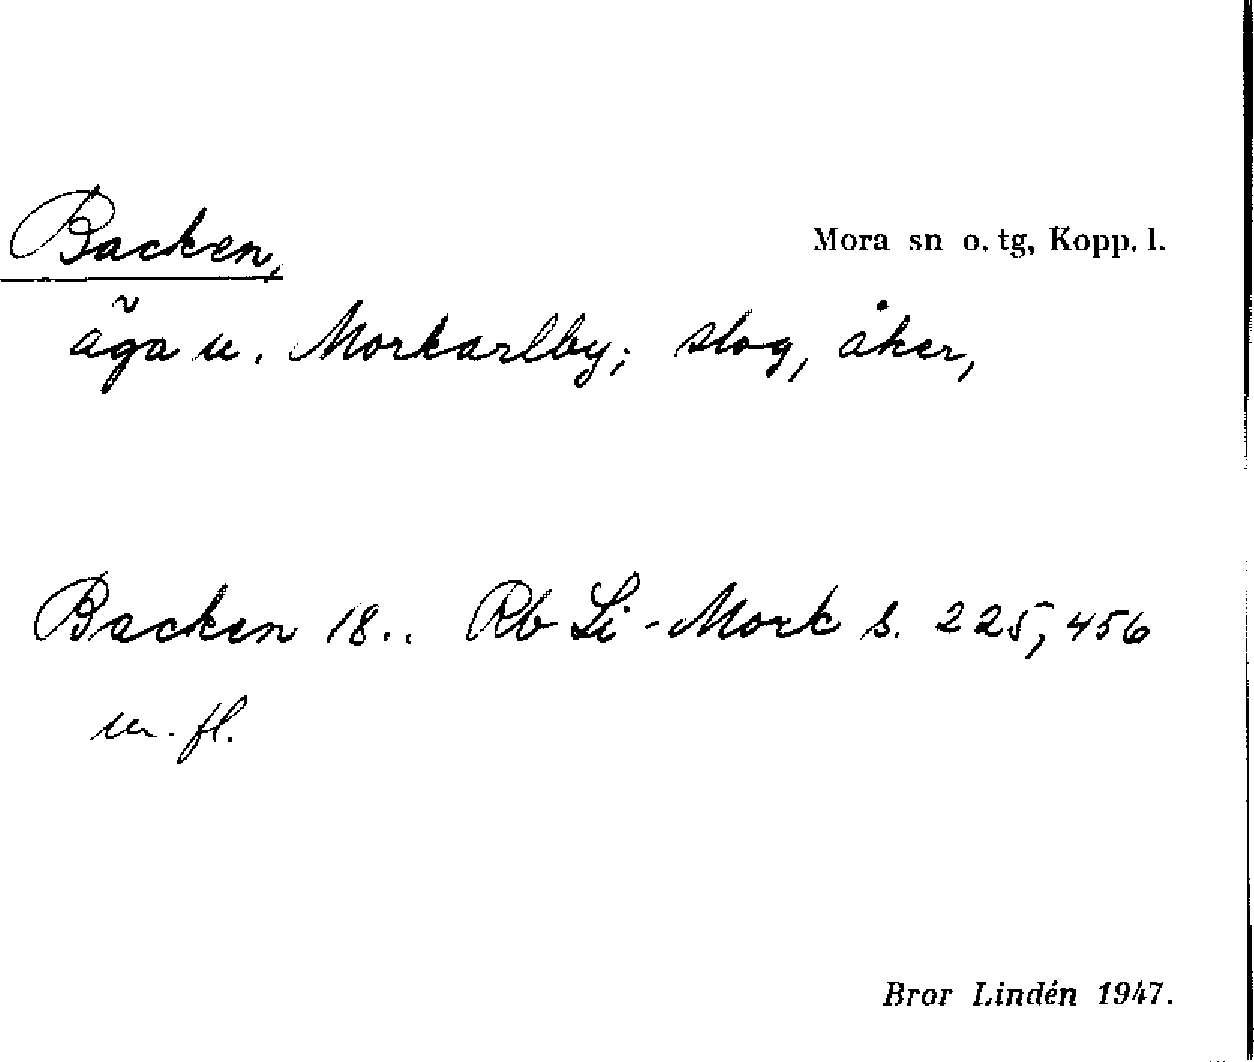 Backen,
Mora sn o. tg, Kopp. l.
äga u. Morkarlby; slog, åker,
Backen 18.. Rb Li-Mork s. 225, 456
m. fl.
Bror Lindén 1947.